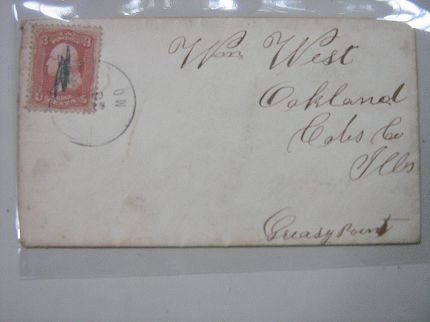 3 3
Wm West
MO
Oakland
Coles Co
Ills
Greasy Point